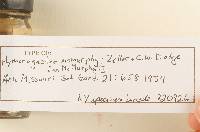 TYPE OF:
Hymenogaster mcmurphyi Zeller & C.W. Dodge
in McMurphy
Ann. Missouri Bot. Gard. 21: 658 1934
NY specimen barcode